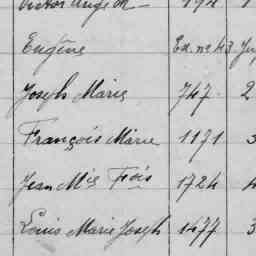 Victor Ange M 194 1
Eugène Ex. no 43
Joseph Marie 747 2
François Marie 1171 3
Jean Mie Frois 1724 4
Louis Marie Joseph 1477 3